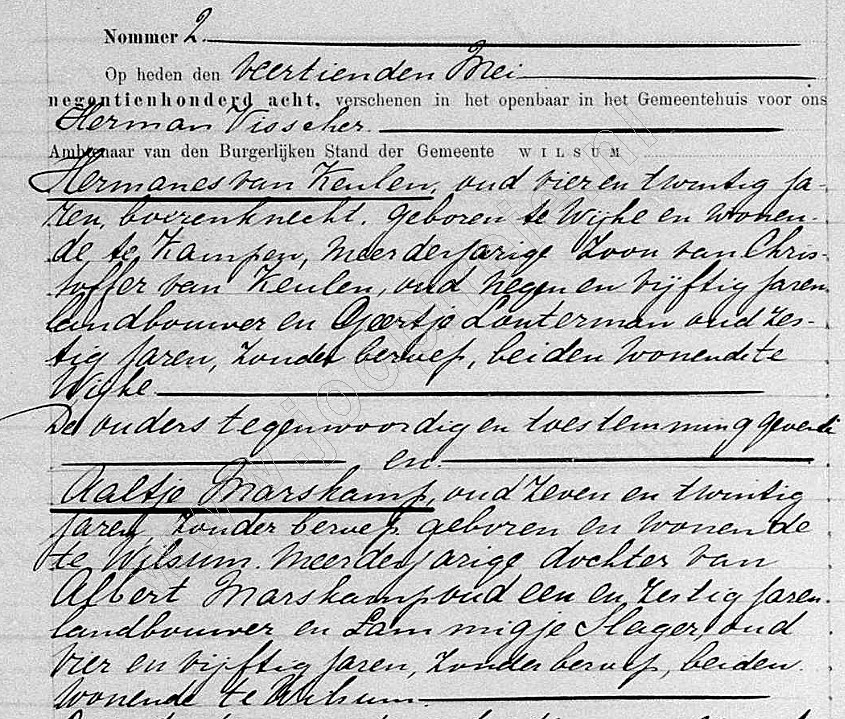 Nommer 2.
Op heden den veertienden Mei
negentienhonderd acht, verschenen in het openbaar in het Gemeentehuis voor ons
Herman Visscher.
Ambtenaar van den Burgerlijken Stand der Gemeente WILSUM
Hermanes van Keulen, oud vier en twintig ja-
ren, boerenknecht, geboren te Wijhe en wonen-
de te Kampen, meerderjarige zoon van Chris-
toffer van Keulen, oud negen en vijftig jaren
landbouwer en Geertje Louterman oud zes-
tig jaren, zonder beroep, beiden wonende te
Wijhe
De ouders tegenwoordig en toestemming gevende
en
Aaltje Marskamp, oud zeven en twintig
jaren, zonder beroep geboren en wonende
te Wilsum. meerderjarige dochter van
Albert Marskamp oud een en zestig jaren
landbouwer en Lammigje Slager, oud
vier en vijftig jaren, zonder beroep, beiden
wonende te Wilsum